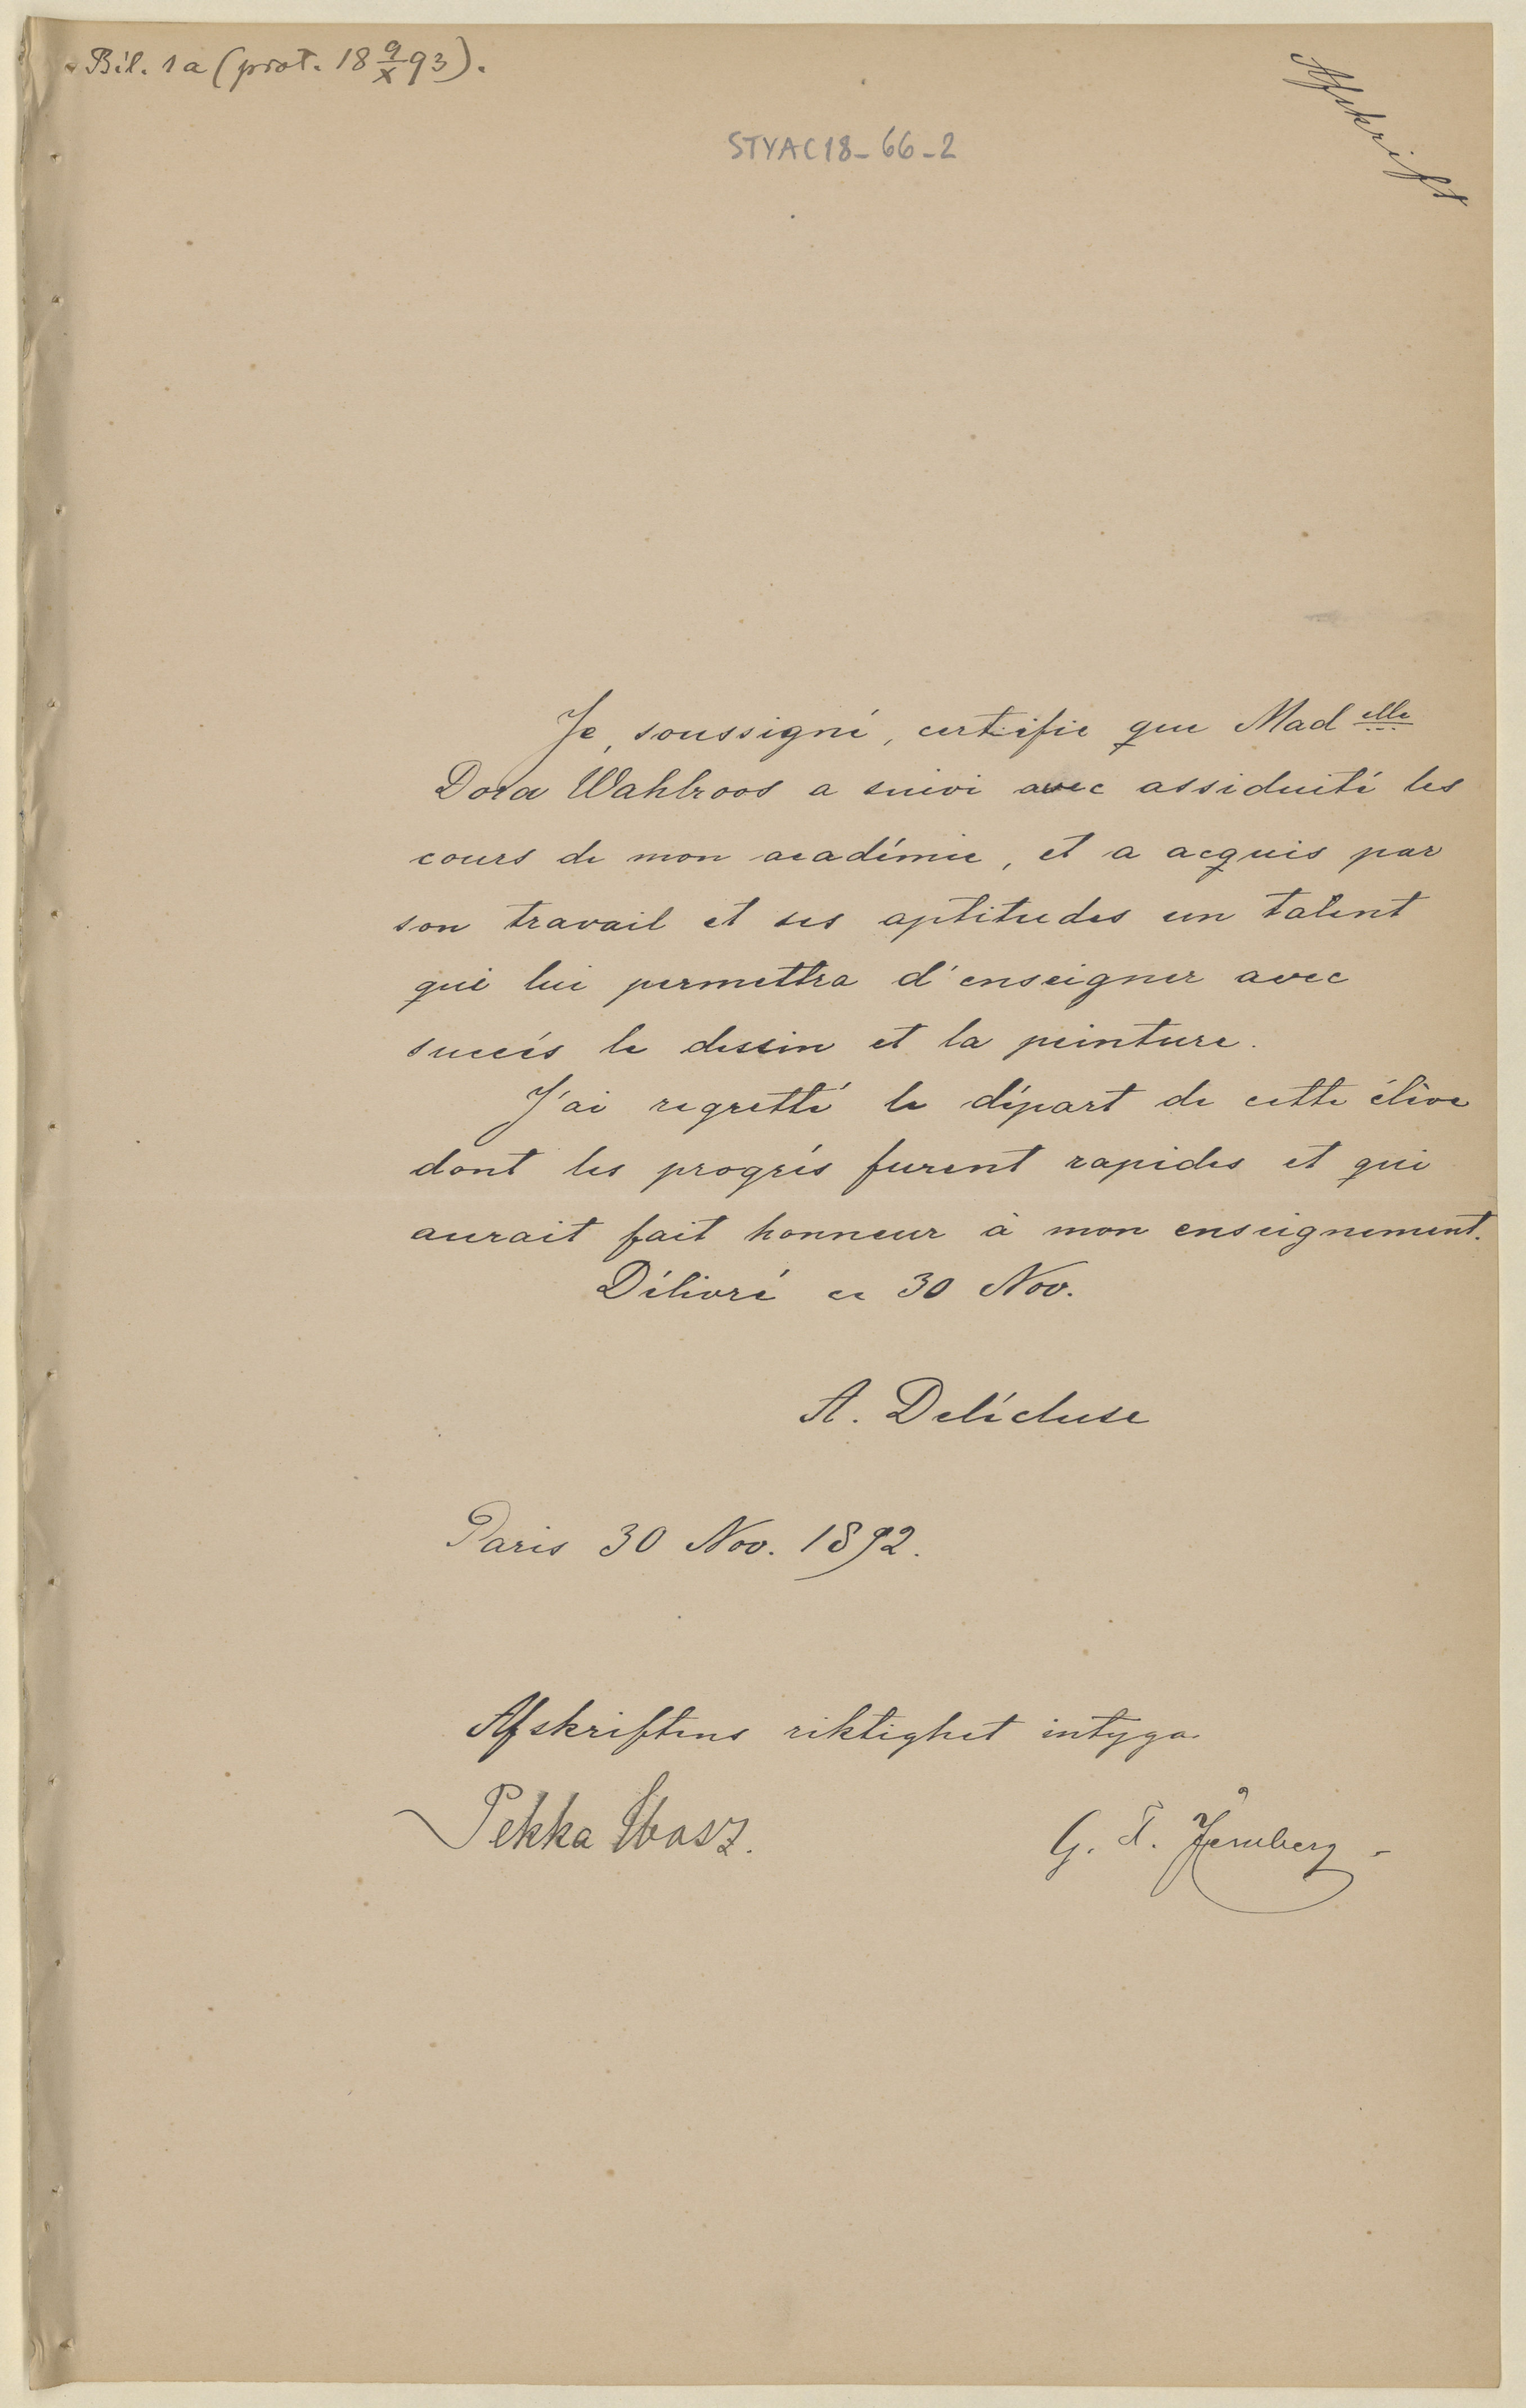 Bil. 1a (prot. 18 9/X 93).
Afskrift
STYAC18-66-2
Je, soussigné, certifie que Mad elle
Dora Wahlroos a suivi avec assiduité les
cours de mon académie, et a acquis par
son travail et ses aptitudes un talent
qui lui permettra d'enseigner avec
succés le dessin et la peinture.
J'ai regretté le départ de cette élève
dont les progrés furent rapides et qui
aurait fait honneur à mon enseignement.
Délivré ce 30 Nov.
A. Délécluse
Paris 30 Nov. 1892.
Afskriftens riktighet intyga
Pekka
G. F. Jernberg